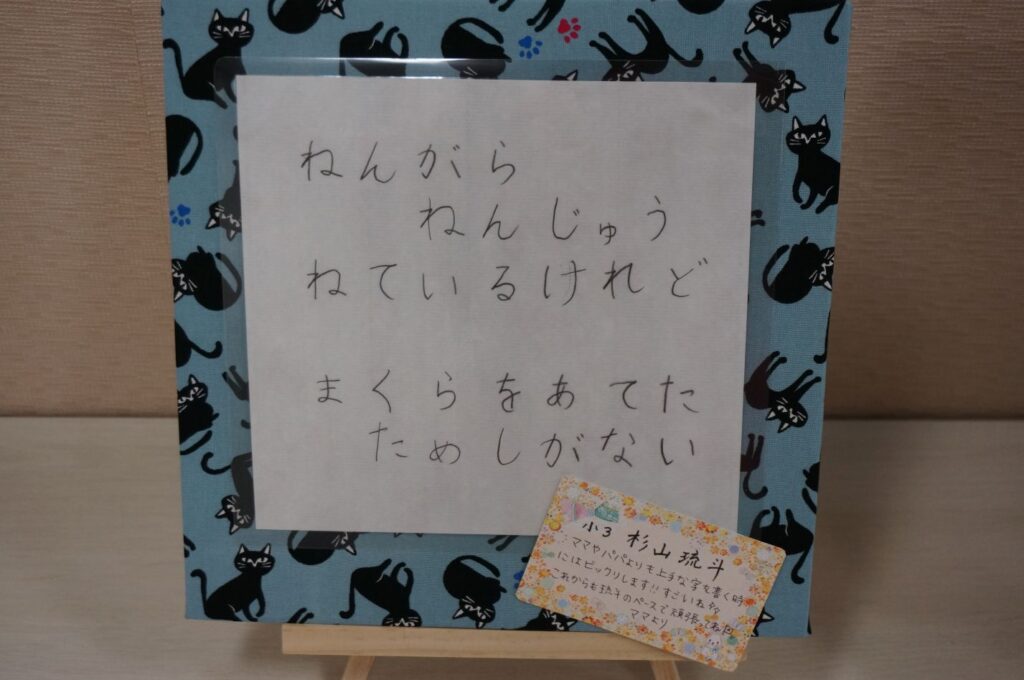 ねんがら
ねんじゅう
ねているけれど
まくらをあてた
ためしがない
小3 杉山琉斗
ママやパパよりも上手な字を書く時
にはビックリします!!すごいね
これからも琉斗のペースで頑張ってね
ママより